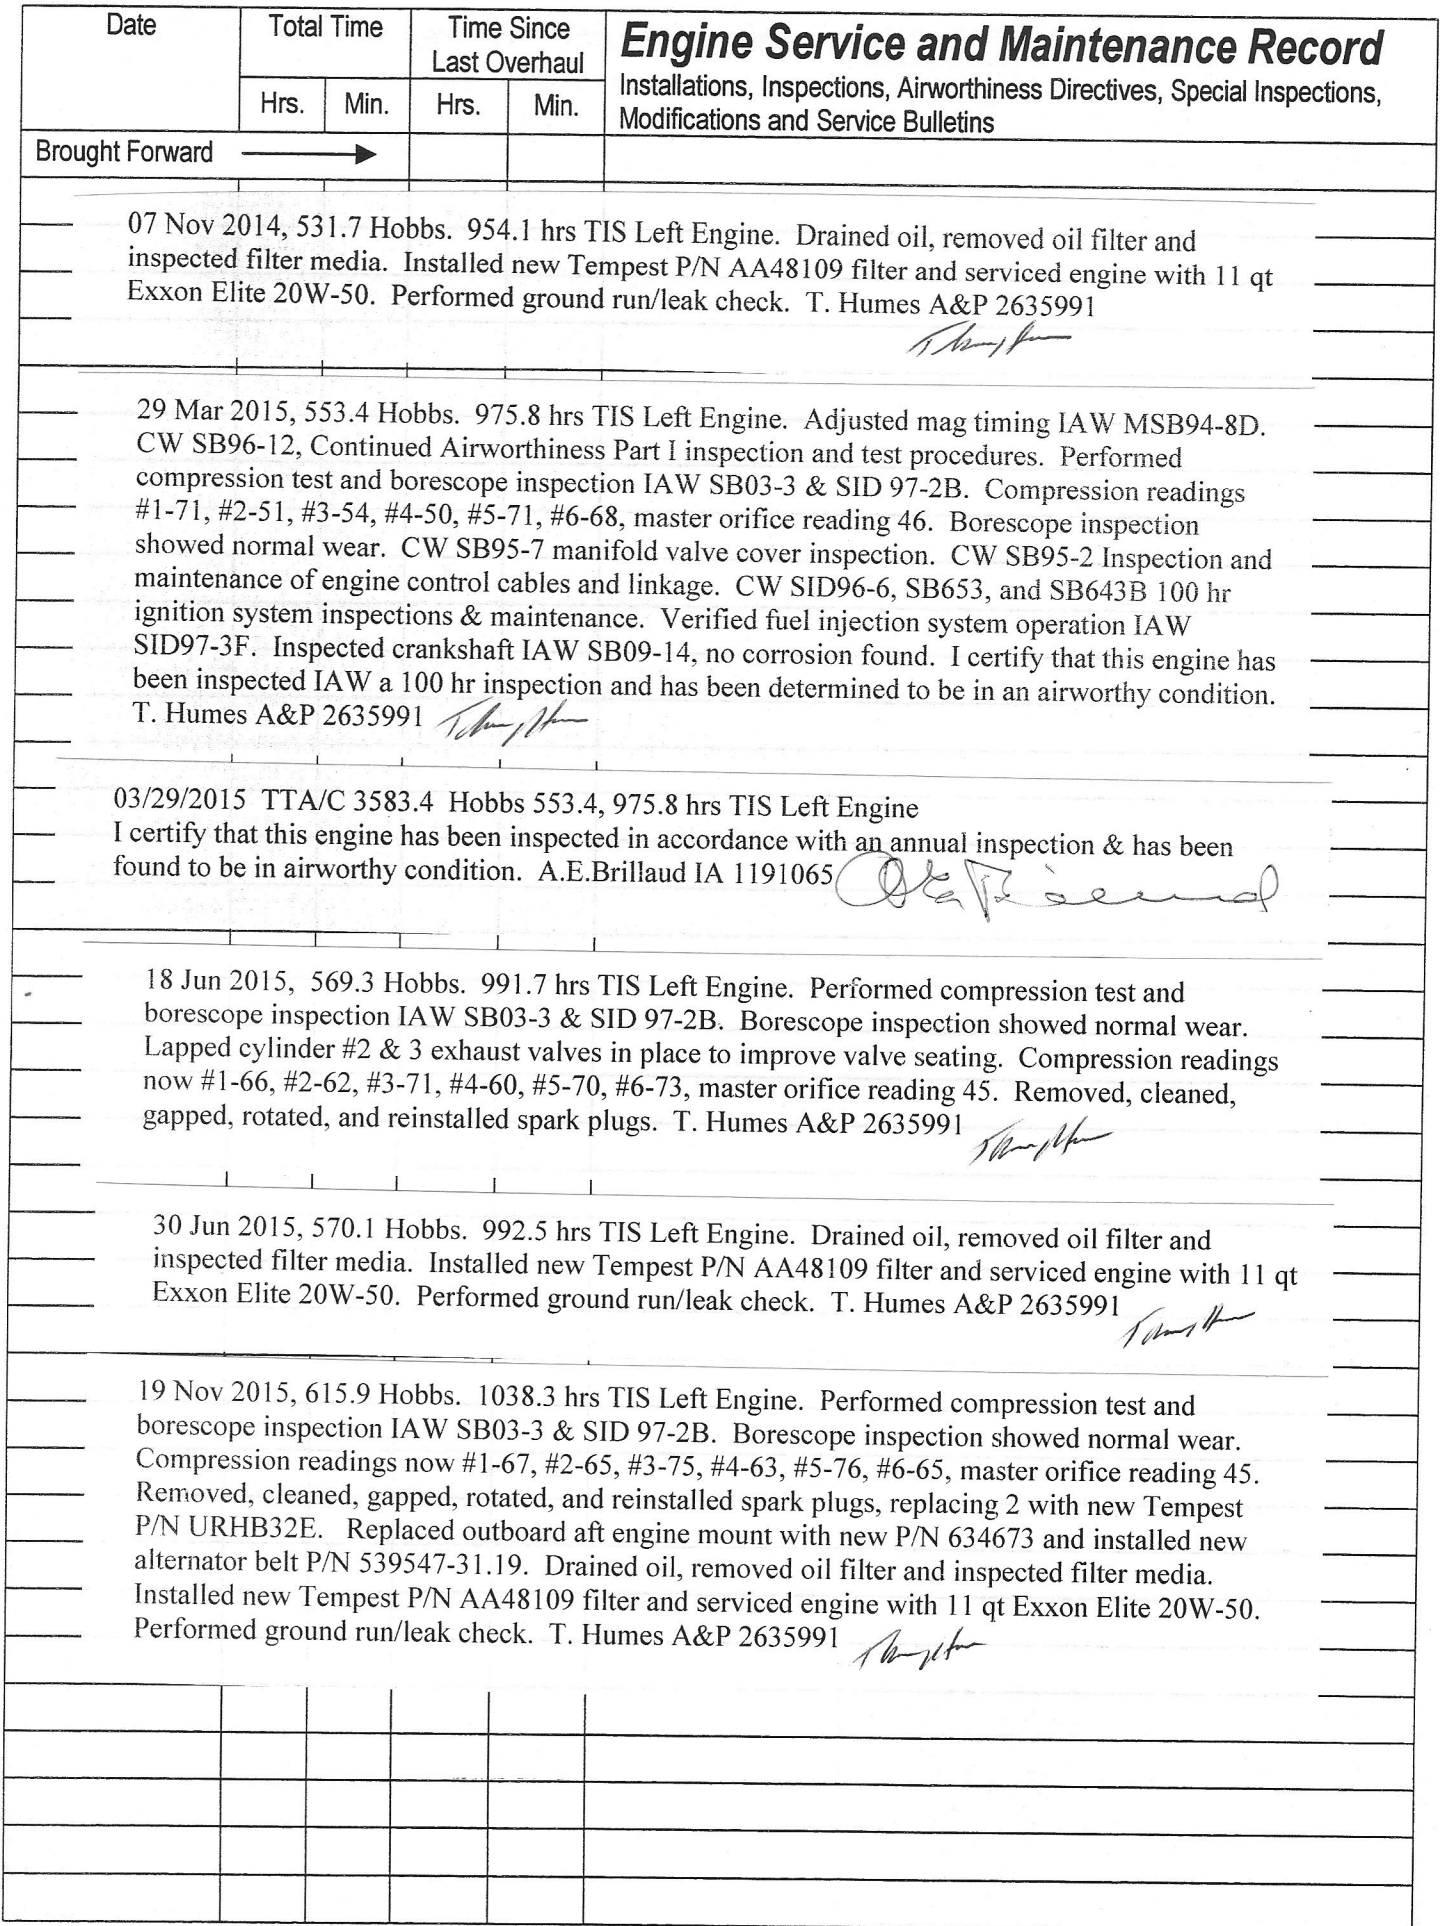 Date
Total Time
Time Since
Last Overhaul
Engine Service and Maintenance Record
Installations, Inspections, Airworthiness Directives, Special Inspections,
Modifications and Service Bulletins
Hrs. Min. Hrs. Min.
Brought Forward
07 Nov 2014, 531.7 Hobbs. 954.1 hrs TIS Left Engine. Drained oil, removed oil filter and
inspected filter media. Installed new Tempest P/N AA48109 filter and serviced engine with 11 qt
Exxon Elite 20W-50. Performed ground run/leak check. T. Humes A&P 2635991
29 Mar 2015, 553.4 Hobbs. 975.8 hrs TIS Left Engine. Adjusted mag timing IAW MSB94-8D.
CW SB96-12, Continued Airworthiness Part I inspection and test procedures. Performed
compression test and borescope inspection IAW SB03-3 & SID 97-2B. Compression readings
#1-71, #2-51, #3-54, #4-50, #5-71, #6-68, master orifice reading 46. Borescope inspection
showed normal wear. CW SB95-7 manifold valve cover inspection. CW SB95-2 Inspection and
maintenance of engine control cables and linkage. CW SID96-6, SB653, and SB643B 100 hr
ignition system inspections & maintenance. Verified fuel injection system operation IAW
SID97-3F. Inspected crankshaft IAW SB09-14, no corrosion found. I certify that this engine has
been inspected IAW a 100 hr inspection and has been determined to be in an airworthy condition.
T. Humes A&P 2635991
03/29/2015 TTA/C 3583.4 Hobbs 553.4, 975.8 hrs TIS Left Engine
I certify that this engine has been inspected in accordance with an annual inspection & has been
found to be in airworthy condition. A.E.Brillaud IA 1191065
18 Jun 2015, 569.3 Hobbs. 991.7 hrs TIS Left Engine. Performed compression test and
borescope inspection IAW SB03-3 & SID 97-2B. Borescope inspection showed normal wear.
Lapped cylinder #2 & 3 exhaust valves in place to improve valve seating. Compression readings
now #1-66, #2-62, #3-71, #4-60, #5-70, #6-73, master orifice reading 45. Removed, cleaned,
gapped, rotated, and reinstalled spark plugs. T. Humes A&P 2635991
30 Jun 2015, 570.1 Hobbs. 992.5 hrs TIS Left Engine. Drained oil, removed oil filter and
inspected filter media. Installed new Tempest P/N AA48109 filter and serviced engine with 11 qt
Exxon Elite 20W-50. Performed ground run/leak check. T. Humes A&P 2635991
19 Nov 2015, 615.9 Hobbs. 1038.3 hrs TIS Left Engine. Performed compression test and
borescope inspection IAW SB03-3 & SID 97-2B. Borescope inspection showed normal wear.
Compression readings now #1-67, #2-65, #3-75, #4-63, #5-76, #6-65, master orifice reading 45.
Removed, cleaned, gapped, rotated, and reinstalled spark plugs, replacing 2 with new Tempest
P/N URHB32E. Replaced outboard aft engine mount with new P/N 634673 and installed new
alternator belt P/N 539547-31.19. Drained oil, removed oil filter and inspected filter media.
Installed new Tempest P/N AA48109 filter and serviced engine with 11 qt Exxon Elite 20W-50.
Performed ground run/leak check. T. Humes A&P 2635991